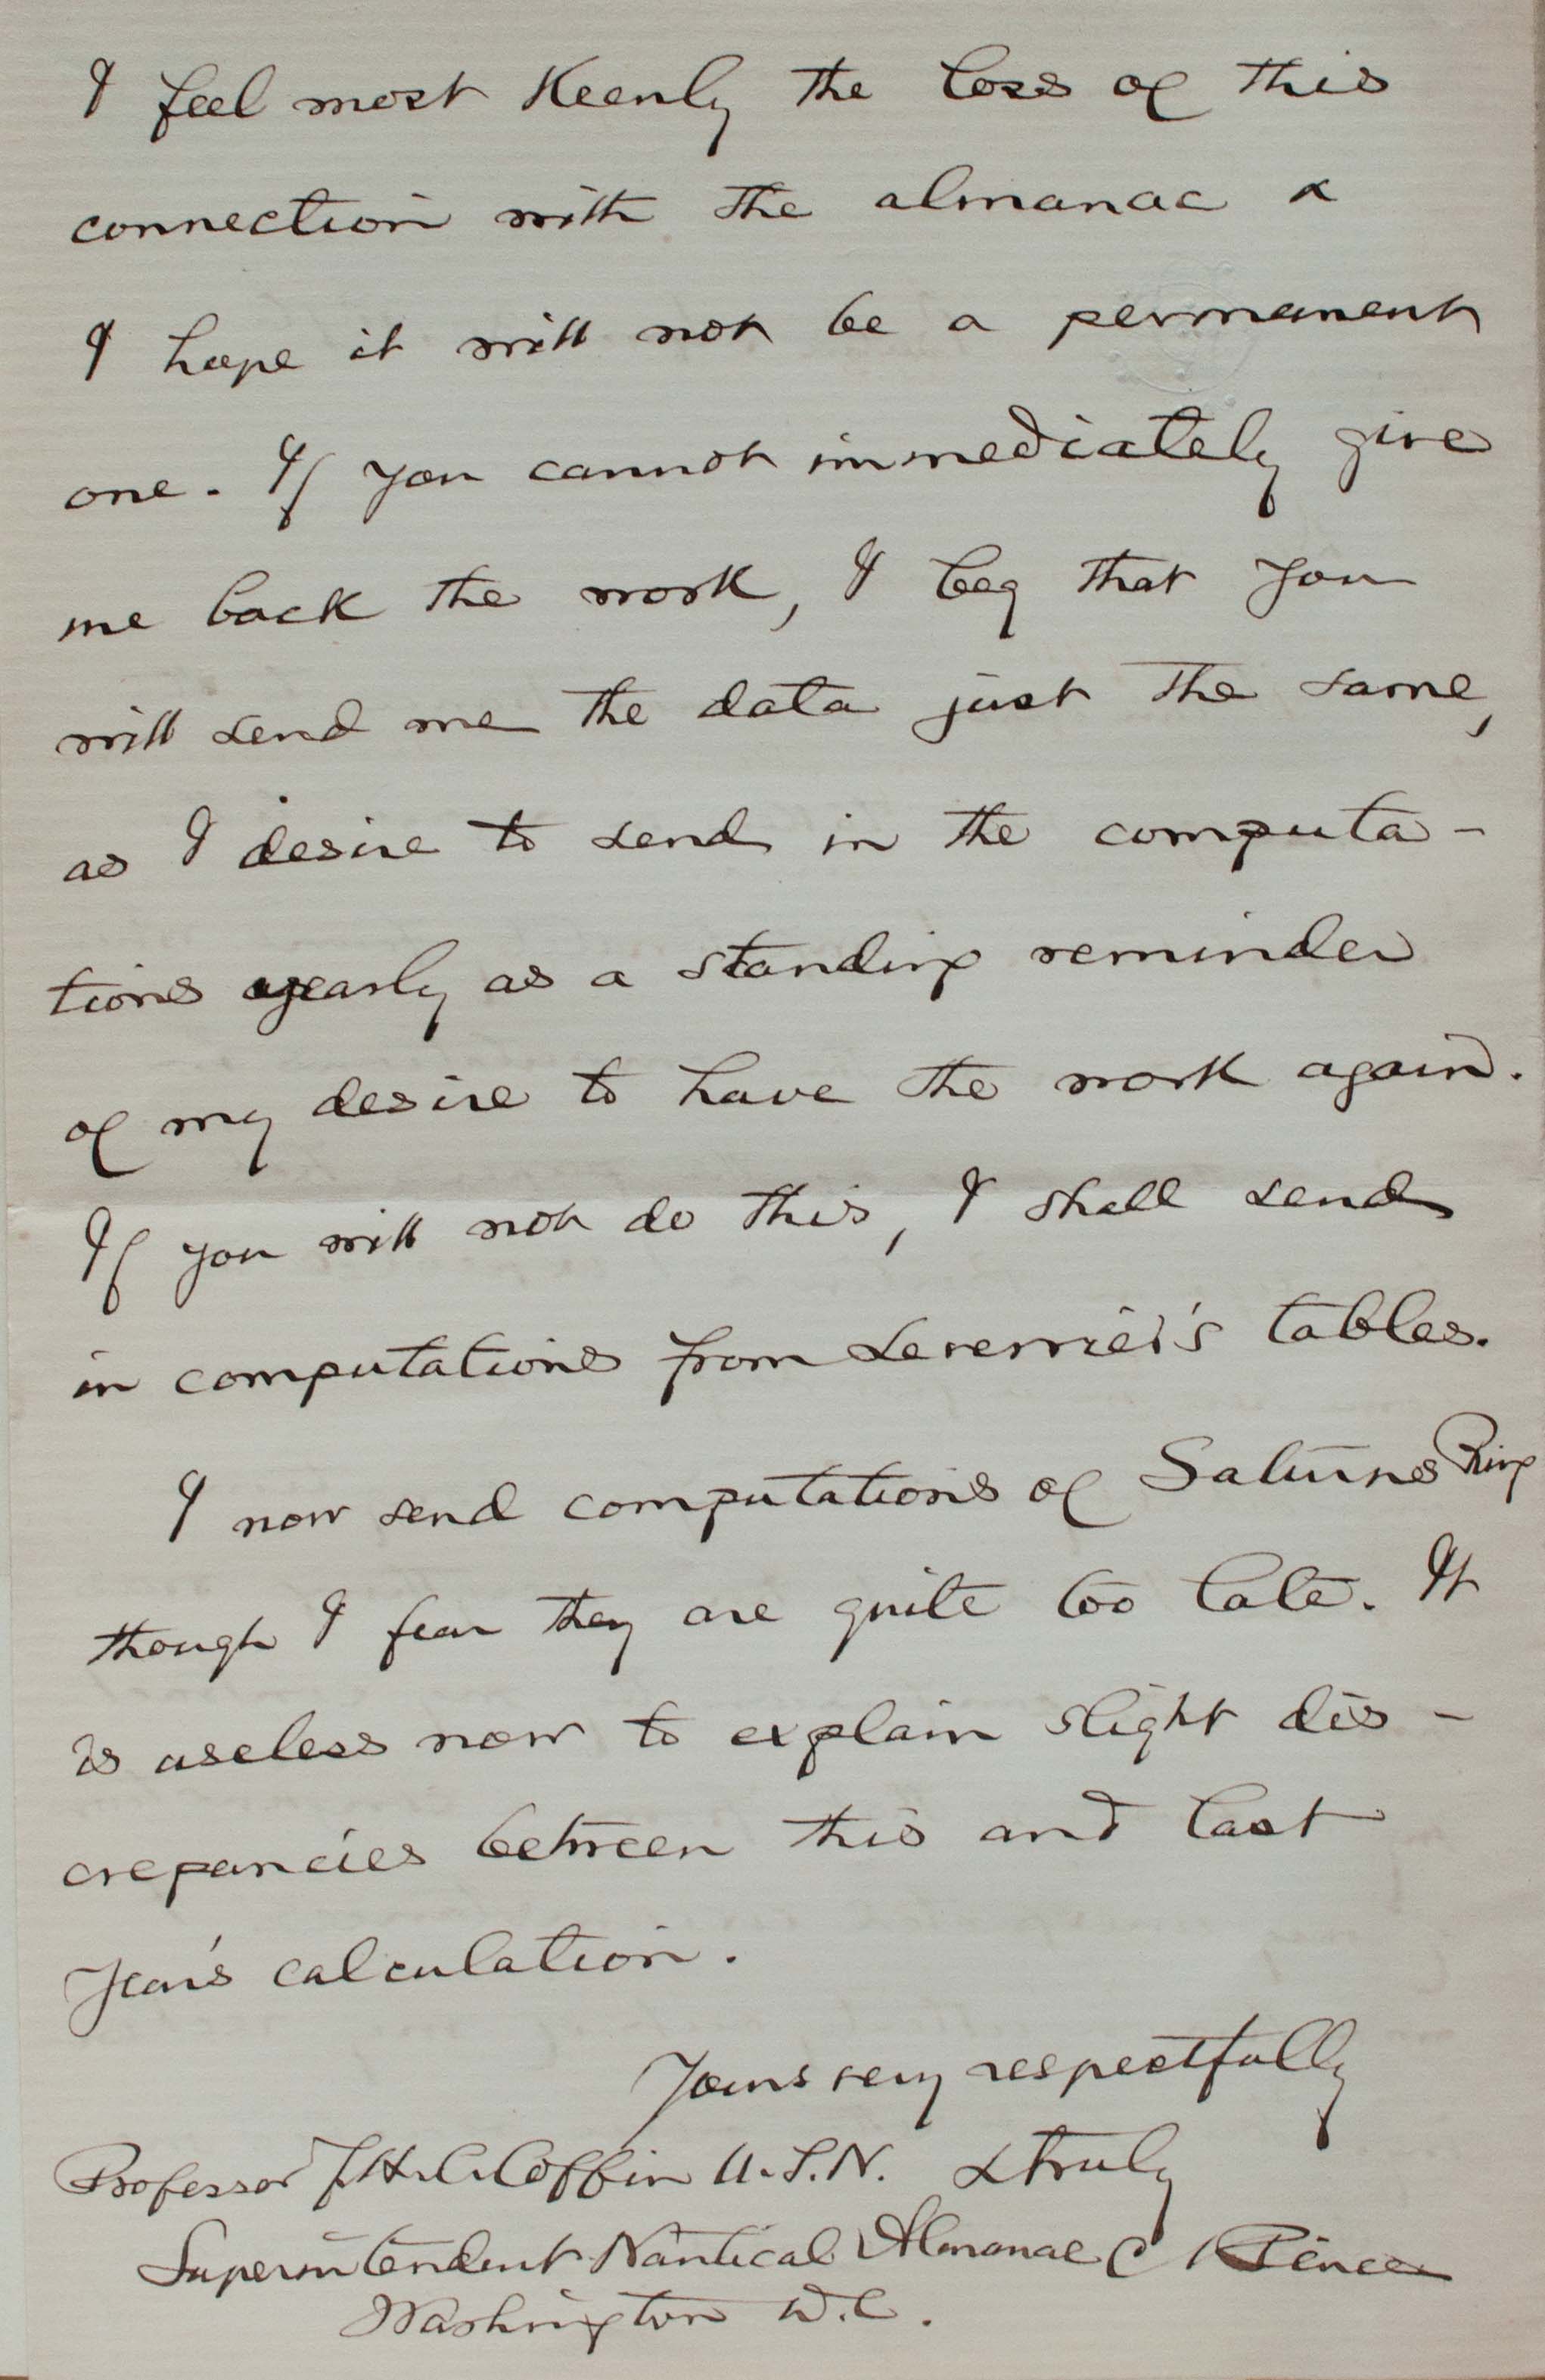 I feel most keenly the loss of this
connection with the almanac &
I hope it will not be a permanent
one. If you cannot immediately give
me back the work, I beg that you
will send me the data just the same,
as I desire to send in the computa-
tions yearly as a standing reminder
of my desire to have the work again.
If you will not do this, I shall send
in computations from Leverrier's tables.
I now send computations of Saturns Ring
though I fear they are quite too late. It
is useless now to explain slight dis-
crepancies between this and last
Year's calculation.
Yours very respectfully
Professor J.H.C. Coffin U.S.N. & truly
Superintendent Nautical Almanac C Peirce
Washington D.C.